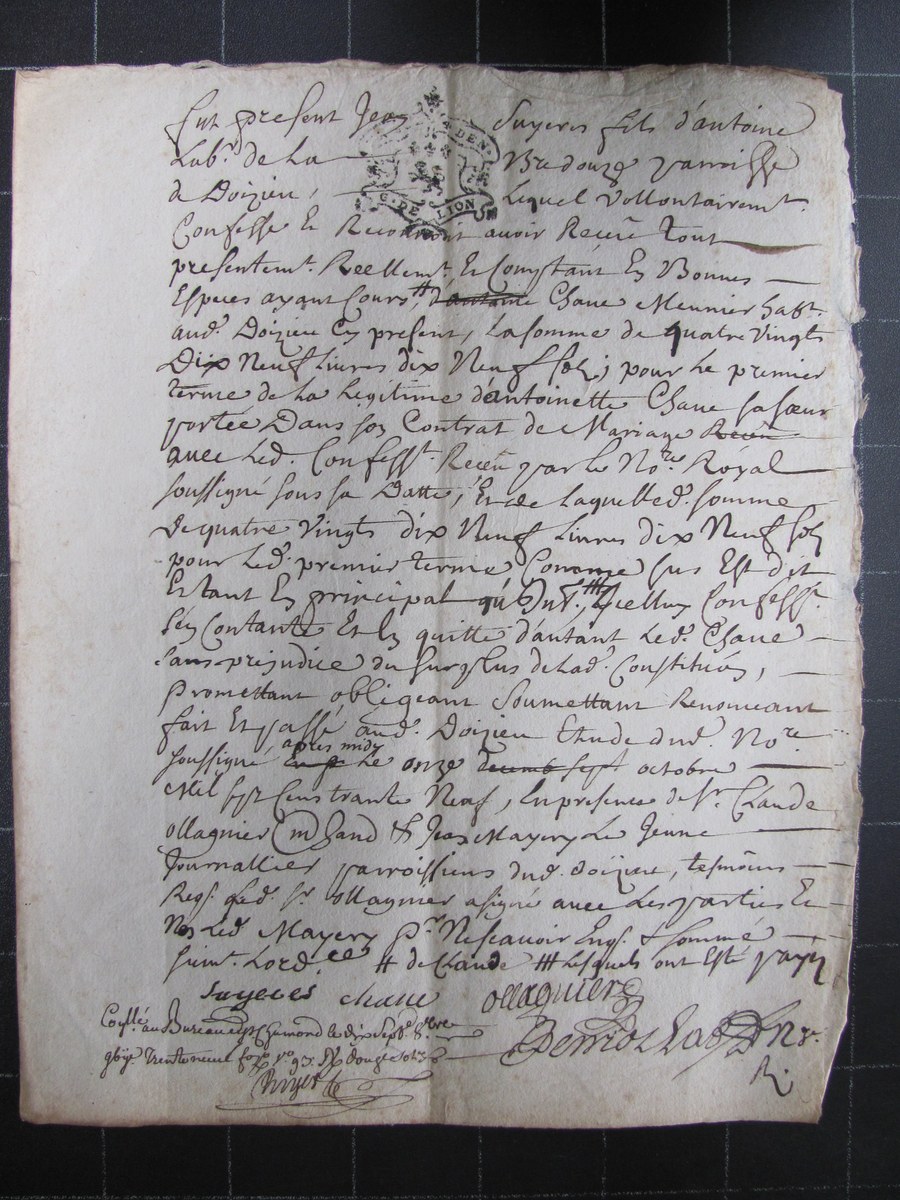 fut present Jean Suyeres fils d'antoine
Lab.r de La Bredouze parroisse
de Doizieu, Lequel Vollontairem.t
G. DE LION
Confesse Et Reconnoit avoir Receu tout
presentem.t Reellem.t Et Comptant En Bonnes
Especes ayant Cours, # d'antoine Chave Meunier hab.t
aud. Doizieu Cy present, La somme de quatre Vingts
Dix Neuf Livres dix Neuf sols, pour Le premier
terme de La Legitime d'antoinette Chave sa soeur
portée Dans son Contrat de Mariage Receu
avec Led. Confess.t Receu par Le No.re Royal
soussigné sous sa Datte, Et de Laquelle d. somme
De quatre Vingts dix Neuf Livres dix Neuf sols
pour Led. premier terme Comme sus Est dit
Estant En principal ### Icelluy Confess.t
s'en Contante Et En quitte d'autant Led. Chave
sans prejudice du surplus de Lad. Constitution,
Promettant obligeant Soumettant Renonceant
fait Et passé aud. Doizieu Etude dud. No.re
soussigné apres midy Le onze octobre
Mil sept Cens trante Neuf, En presence de S.r Claude
ollagnier Jean Mayery Le Jeune
Journallier parroissiens dud. doizieu, tesmoins
Req. Led. s.r ollagnier a signé avec Les parties Et
Non Led. Mayery p.r Ne scavoir Enq. & sommé
suiv.t Lord.ce # de Claude ### Lesquels ont Esté payés
Suyeres chave ollagniere
Conllé au Bureau de St Chemond le dix sept 8.bre
trente neuf fo v.o 93 R douze sols